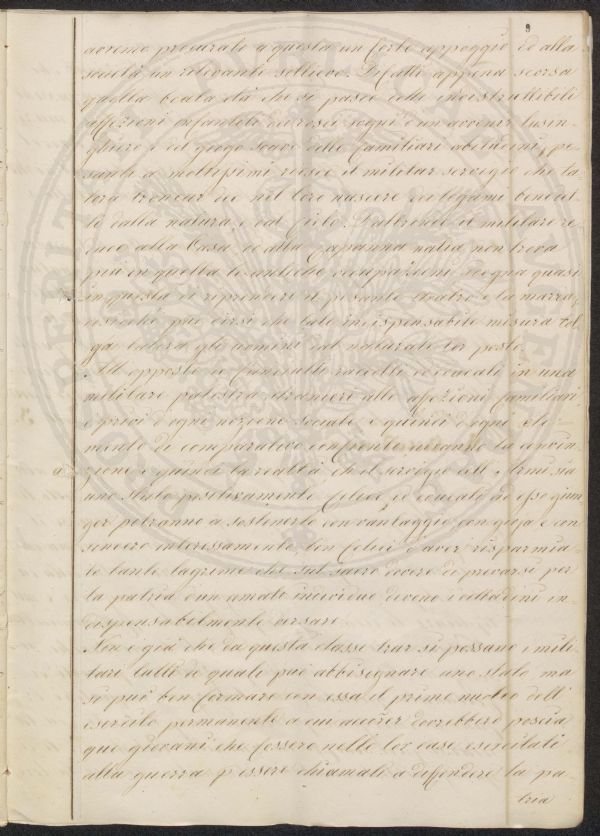 9
avremo procurato a questa un forte appoggio ed alla
società un rilevante sollievo. Difatti appena scorsa
quella beata età che si pasce delle indistruttibili
affezioni infantili dei rosei sogni d'un avvenir lusin-
ghiero e del giogo soave delle familiari abitudini, pe-
sante a moltissimi riesce il militar servigio che ta-
lora troncar dee nel loro nascere dei legami benedet-
ti dalla natura e dal Cielo. Daltronde il militare re-
duce alla Casa od alla Capanna natia non trova
più in quella le antiche occupazioni sdegna quasi
in questa di riprendere il pesante aratro e la marra,
sicchè può dirsi che tale indispensabile misura tol-
ga talora gli uomini dal naturale lor posto.
All'opposto de' fanciulli raccolti ed educati in una
militare palestra, stranieri alle affezioni familiari
e privi d'ogni nozione sociale e quindi d'ogni ele-
mento di comparativo confronto avranno la convin-
zione e quindi la realtà che il servigio dell'Armi sia
uno stato positivamente felice, ed educati ad esso giun-
ger potranno a sostenerlo con vantaggio con gioja e con
sincero interessamento, ben felici d'aver risparmia-
te tante lagrime che sul sacro dovere di privarsi per
la patria d'un amato individuo devono i cittadini in-
dispensabilmente versare.
Non è già che da questa classe trar si possano i mili-
tari tutti di quali può abbisognare uno stato, ma
si può ben formare con essa il primo nucleo dell'
esercito permanente a cui accorrer dovrebbero poscia
que' giovani che fossero nelle lor case esercitati
alla guerra p. essere chiamati a difendere la pa-
tria